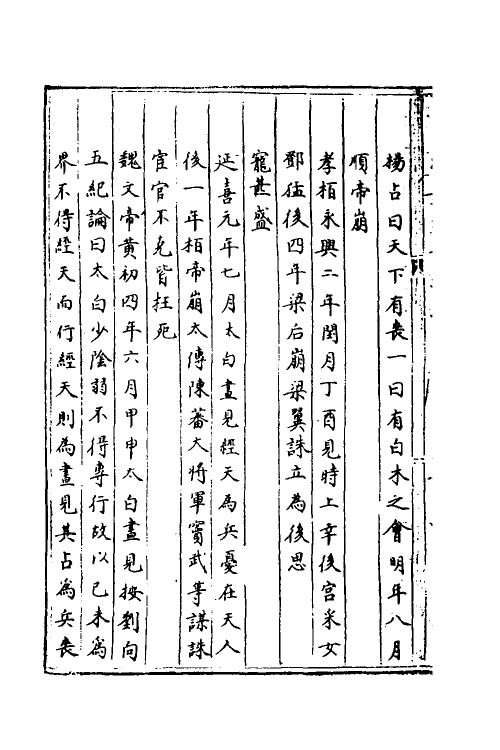 揚占曰天下有喪一曰有白木之會明年八月
順帝崩
孝栢永興二年閏月丁酉見時上幸後宮采女
鄧猛後四年梁后崩梁翼誅立為後思
寵甚盛
延喜元年七月太白晝見經天為兵憂在天人
後一年栢帝崩太傅陳蕃大將軍竇武等謀誅
宦官不免皆枉死
魏文帝黄初四年六月甲申太白晝見按劉向
五紀論曰太白少陰弱不得專行故以己未為
界不得經天而行經天則為晝見其占為兵喪